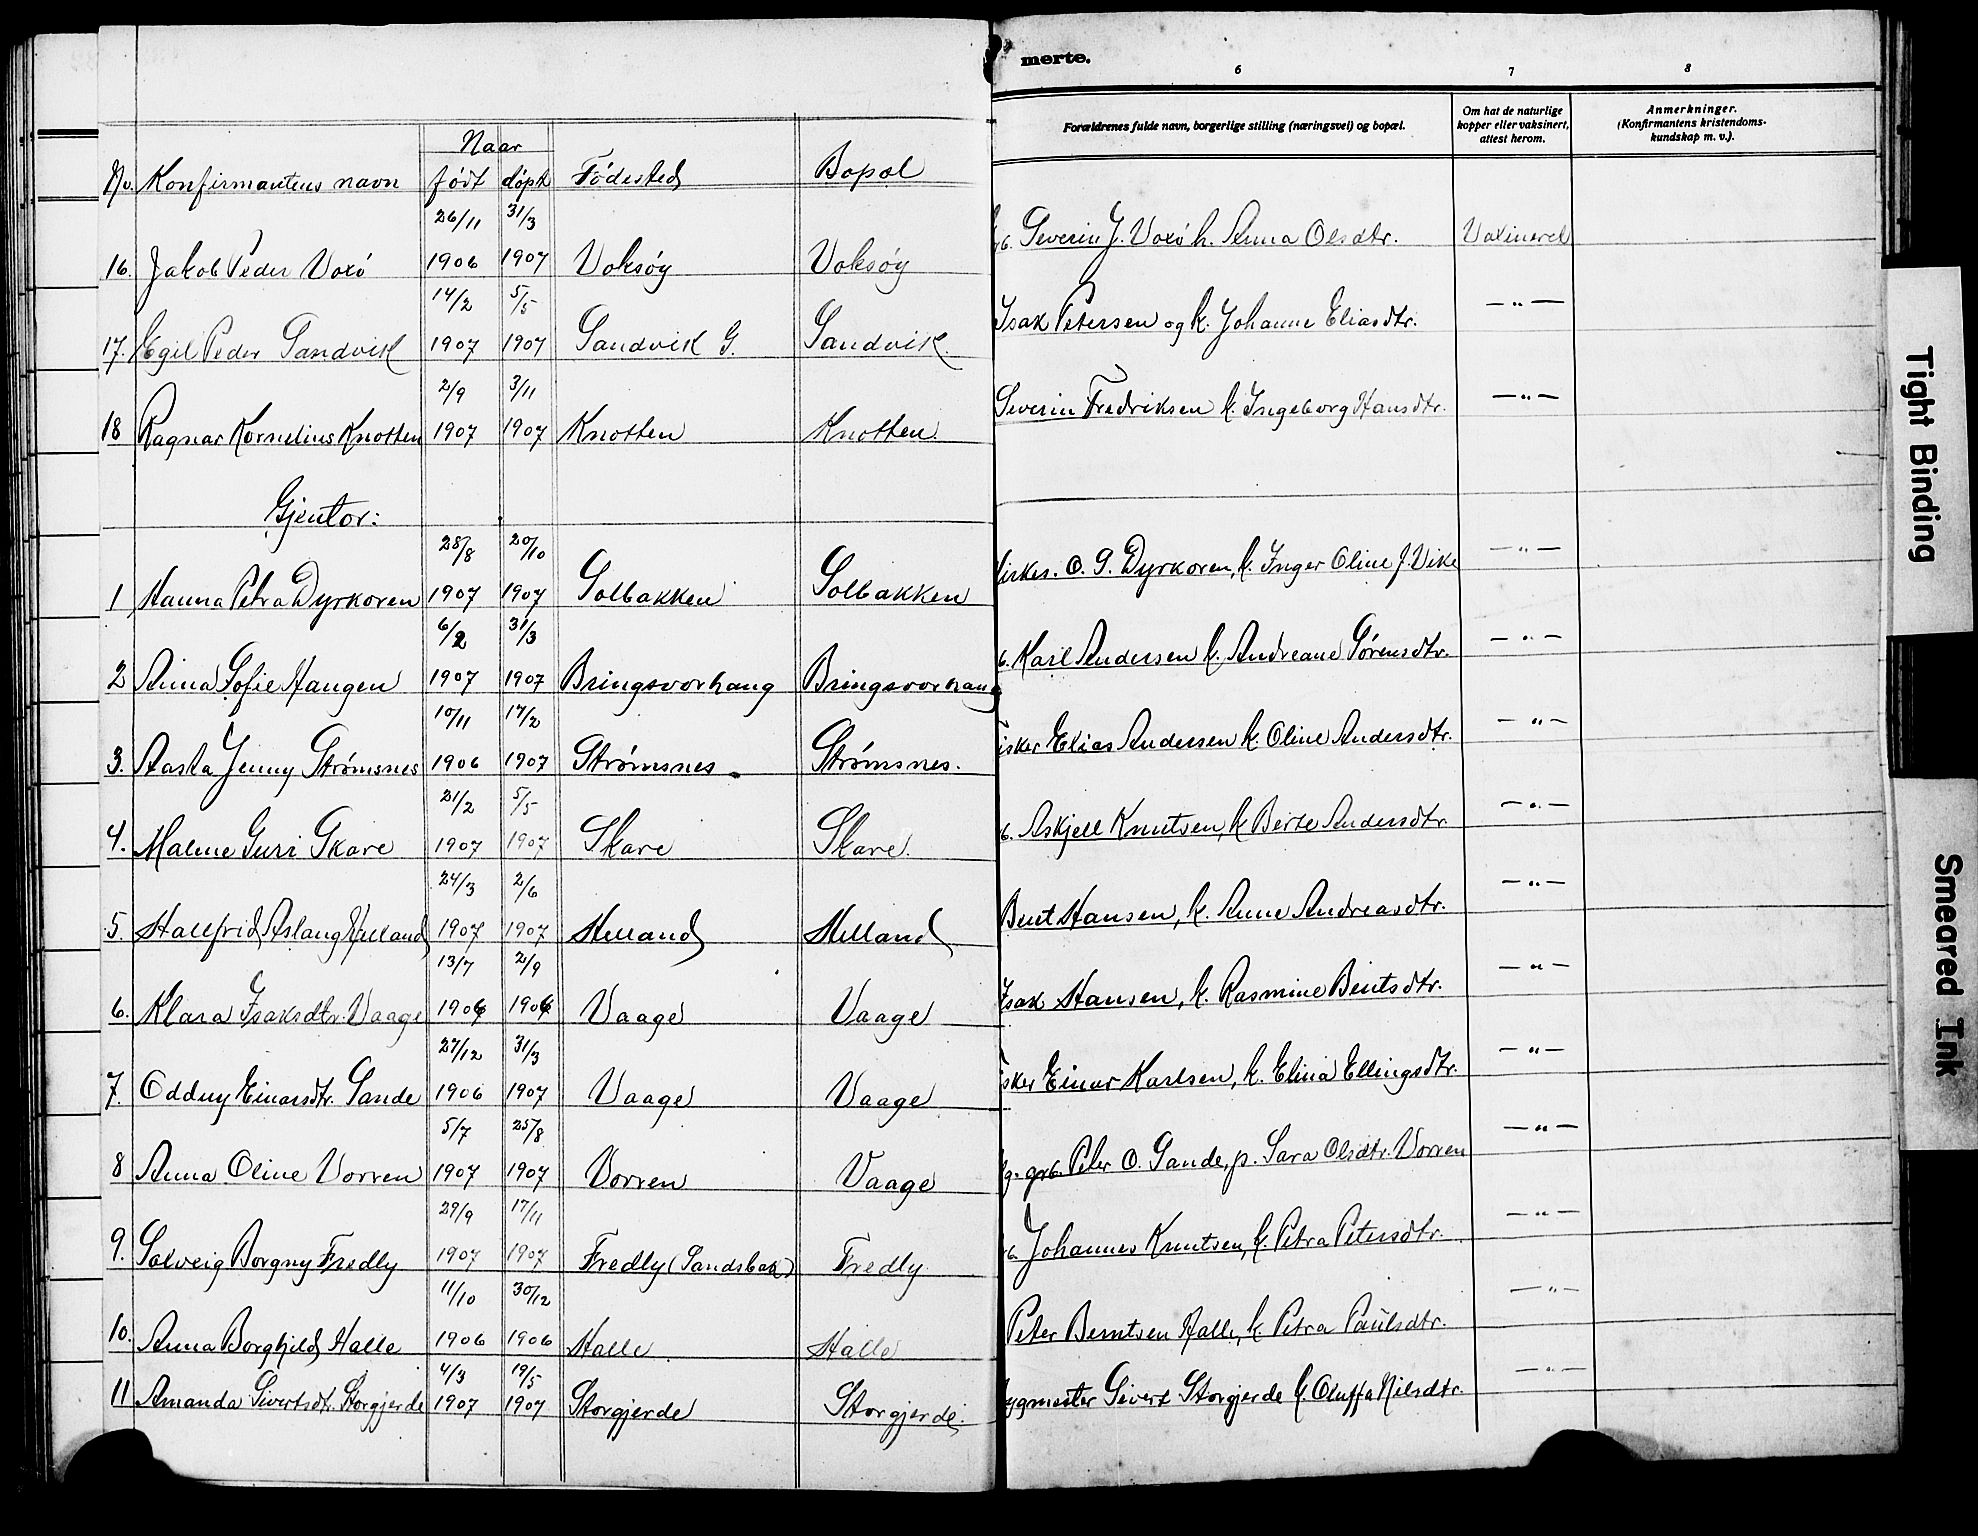 merte.
6 7 8
Naar
No. Konfirmantens navn født døpt Fødested Bopæl Forældrenes fulde navn, borgerlige stilling (næringsvei) og bopæl. Om hat de naturlige kopper eller vaksinert, attest herom. Anmerkninger. (Konfirmantens kristendoms- kundskap m. v.).
26/11 31/3
16. Jakob Peder Voxö 1906 1907 Voksøy Voksøy Severin J. Voxö h. Anna Olsdtr. Vaxineret
14/2 5/5
17. Egil Peder Sandvik 1907 1907 Sandvik G. Sandvik. Isak Petersen og k. Johanne Eliasdtr. — „ —
2/9 3/11
18 Ragnar Kornelius Knotten 1907 1907 Knotten Knotten. Severin Fredriksen k. Ingeborg Hansdtr. — „ —
Gjentor:
28/8 20/10
1 Hanna Petra Dyrkoren 1907 1907 Solbakken Solbakken O. G. Dyrkoren, k. Inger Oline J. Vike — „ —
6/2 31/3
2 Anna Sofie Haugen 1907 1907 Bringsvorhaug Bringsvorhaug Karl Andersen k. Andreane Sørensdtr. — „ —
10/11 17/2
3. Aasta Jenny Strømsnes 1906 1907 Strømsnes. Strømsnes. isker Elias Andersen k. Oline Andersdtr. — „ —
21/2 5/5
4. Malene Guri Skare 1907 1907 Skare Skare. Askjell Knutsen, k Berte Andersdtr. — „ —
24/3 2/6
5. Hallfrid Aslaug Helland 1907 1907 Helland Helland Bent Hansen, k. Anne Andreasdtr. — „ —
13/7 2/9
6. Klara Isaksdtr. Vaage 1906 1906 Vaage Vaage Isak Hansen, k. Rasmine Bentsdtr. — „ —
27/12 31/3
7. Oddny Einarsdtr. Sande 1906 1907 Vaage Vaage isker Einar Karlsen, k. Elina Ellingsdtr. — „ —
5/7 25/8
8 Anna Oline Vorren 1907 1907 Vorren Vaage Peter O. Sande, p. Sara Olsdtr. Vorren — „ —
29/9 17/11
9. Solveig Borgny Fredly 1907 1907 Fredly (Sandsbak) Fredly Johannes Knutsen, k. Petra Petersdtr. — „ —
11/10 30/12
10. Anna Borghild Halle 1906 1906 Halle Halle Peter Berntsen Halle, k. Petra Paulsdtr. — „ —
4/3 19/5
11 Amanda Sivertsdt. Storgjerde 1907 1907 Storgjerde Storgjerde. ygmester Sivert Storgjerde k. Oluffa Nilsdtr. — „ —
Tight Binding
Smeared Ink